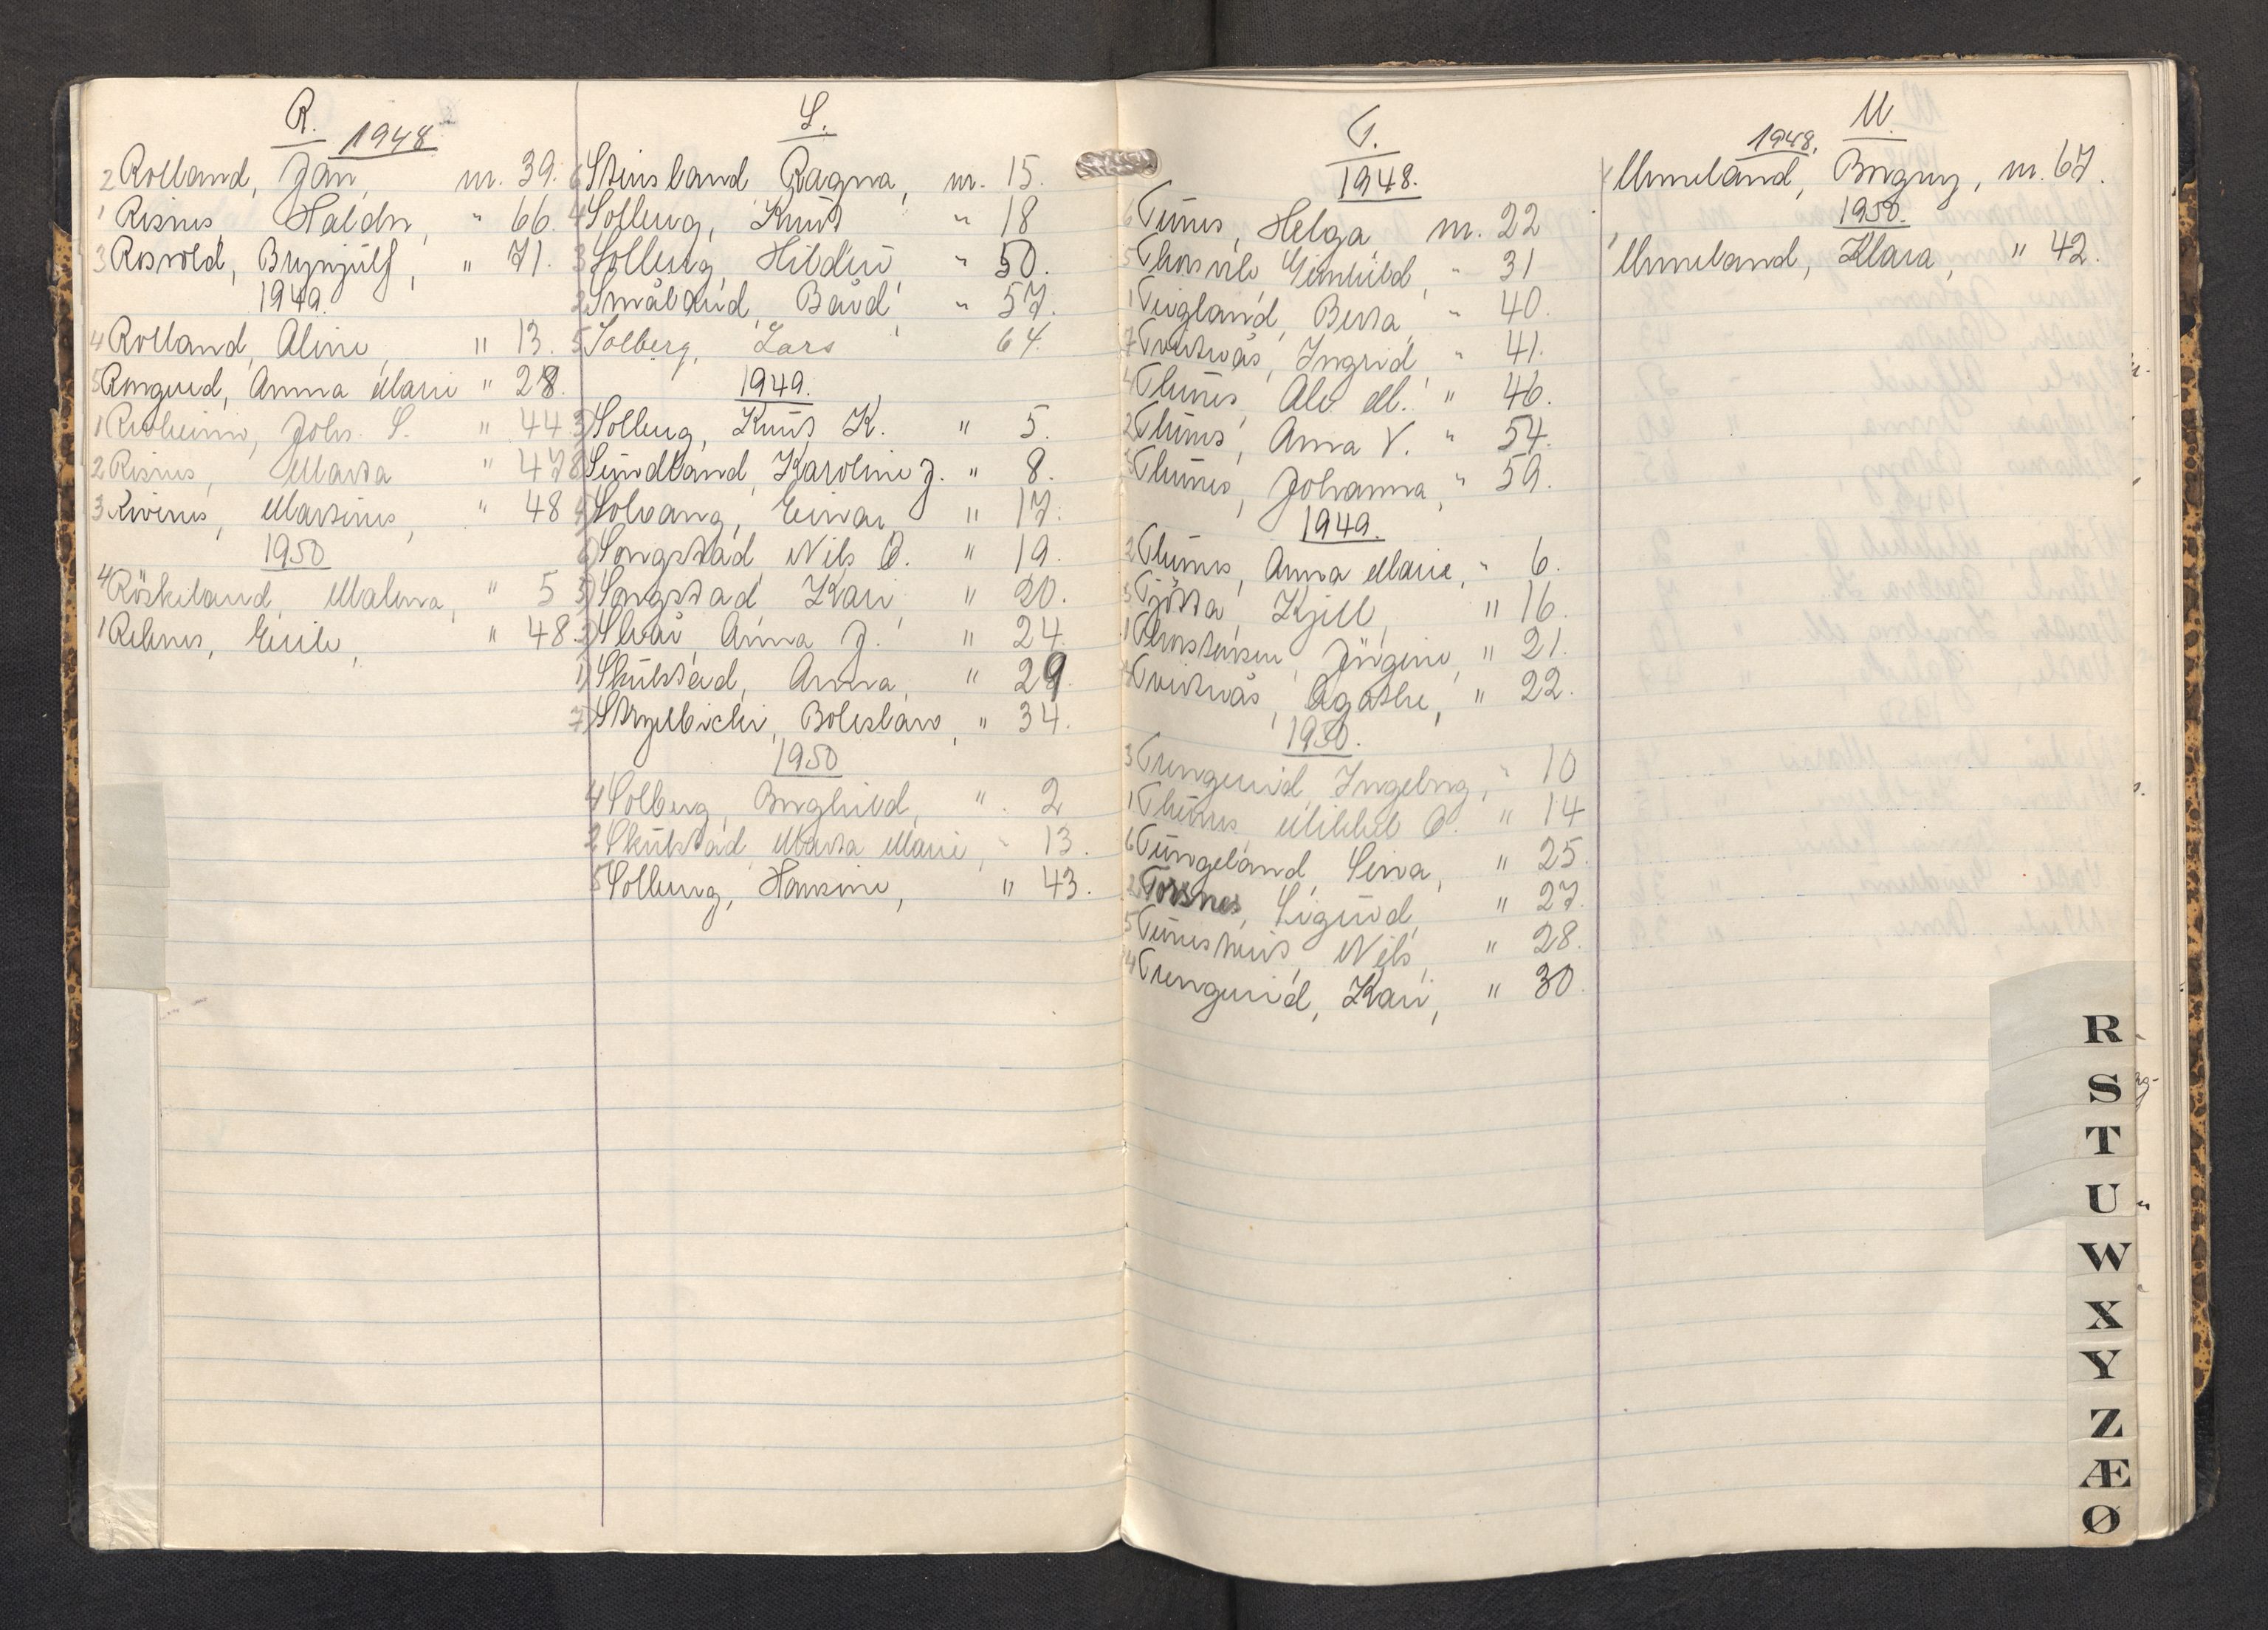 R.
1948
2 Rolland, Jan, nr. 39.
1 Risnes, Haldor, " 66.
3 Rosvold, Brynjulf, " 71.
1949
4 Rolland, Aline, " 13.
5 Rongved, Anna Marie " 28.
1 Risheim, Johs. S. " 44
2 Risnes, Marta " 47
3 Martinus, " 48
1950
4 Röskeland, Malena, " 5
1 " 48.
S.
6 Steinsland Ragna, nr. 15.
4 Solberg, Knut " 18
3 Solberg, Hildur " 50.
2 Småland, Bård " 57.
5 Solberg, Lars 64.
1949.
3 Solberg, Knut K. " 5.
8 Sundland, Karoline J. " 8.
4 Solvang, Einar " 17.
6 Songstad, Nils O. " 19.
5 Songstad Kari " 20.
Anna J. " 24.
1 Skulstad, Anna, " 29.
7 Boleslaw, " 34.
1950
4 Solberg, Borghild, " 2
2 Skulstad, Marta Marie, " 13.
5 Solberg, Hansine, " 43.
T.
1948.
6 Tunes, Helga nr. 22
5 Gunhild, " 31
1 Teigland, Berta, " 40.
7 Tveiterås, Ingrid, " 41.
4 Thunes, Alv M. " 46.
2 Thunes, Anna V. " 54.
3 Thunes, Johanna, " 59.
1949.
2 Thunes, Anna Marie, " 6.
3 Tjötta, Kjell, " 16.
1 Thorstensen, Jörgine, " 21.
4 Tveiterås, Agathe, " 22.
1950.
3 Trengereid, Ingeborg, " 10
1 Thunes, Mikkel O. " 14
6 Tungeland, Sina, " 25.
2 Torsnes, Sigurd, " 27.
5 Nils, " 28.
4 Trengereid, Kari, " 30.
U.
1948.
Unneland, Borgny, nr. 67.
1950.
1 Unneland, Klara, " 42.
R
S
T
U
W
X
Y
Z
Æ
Ø